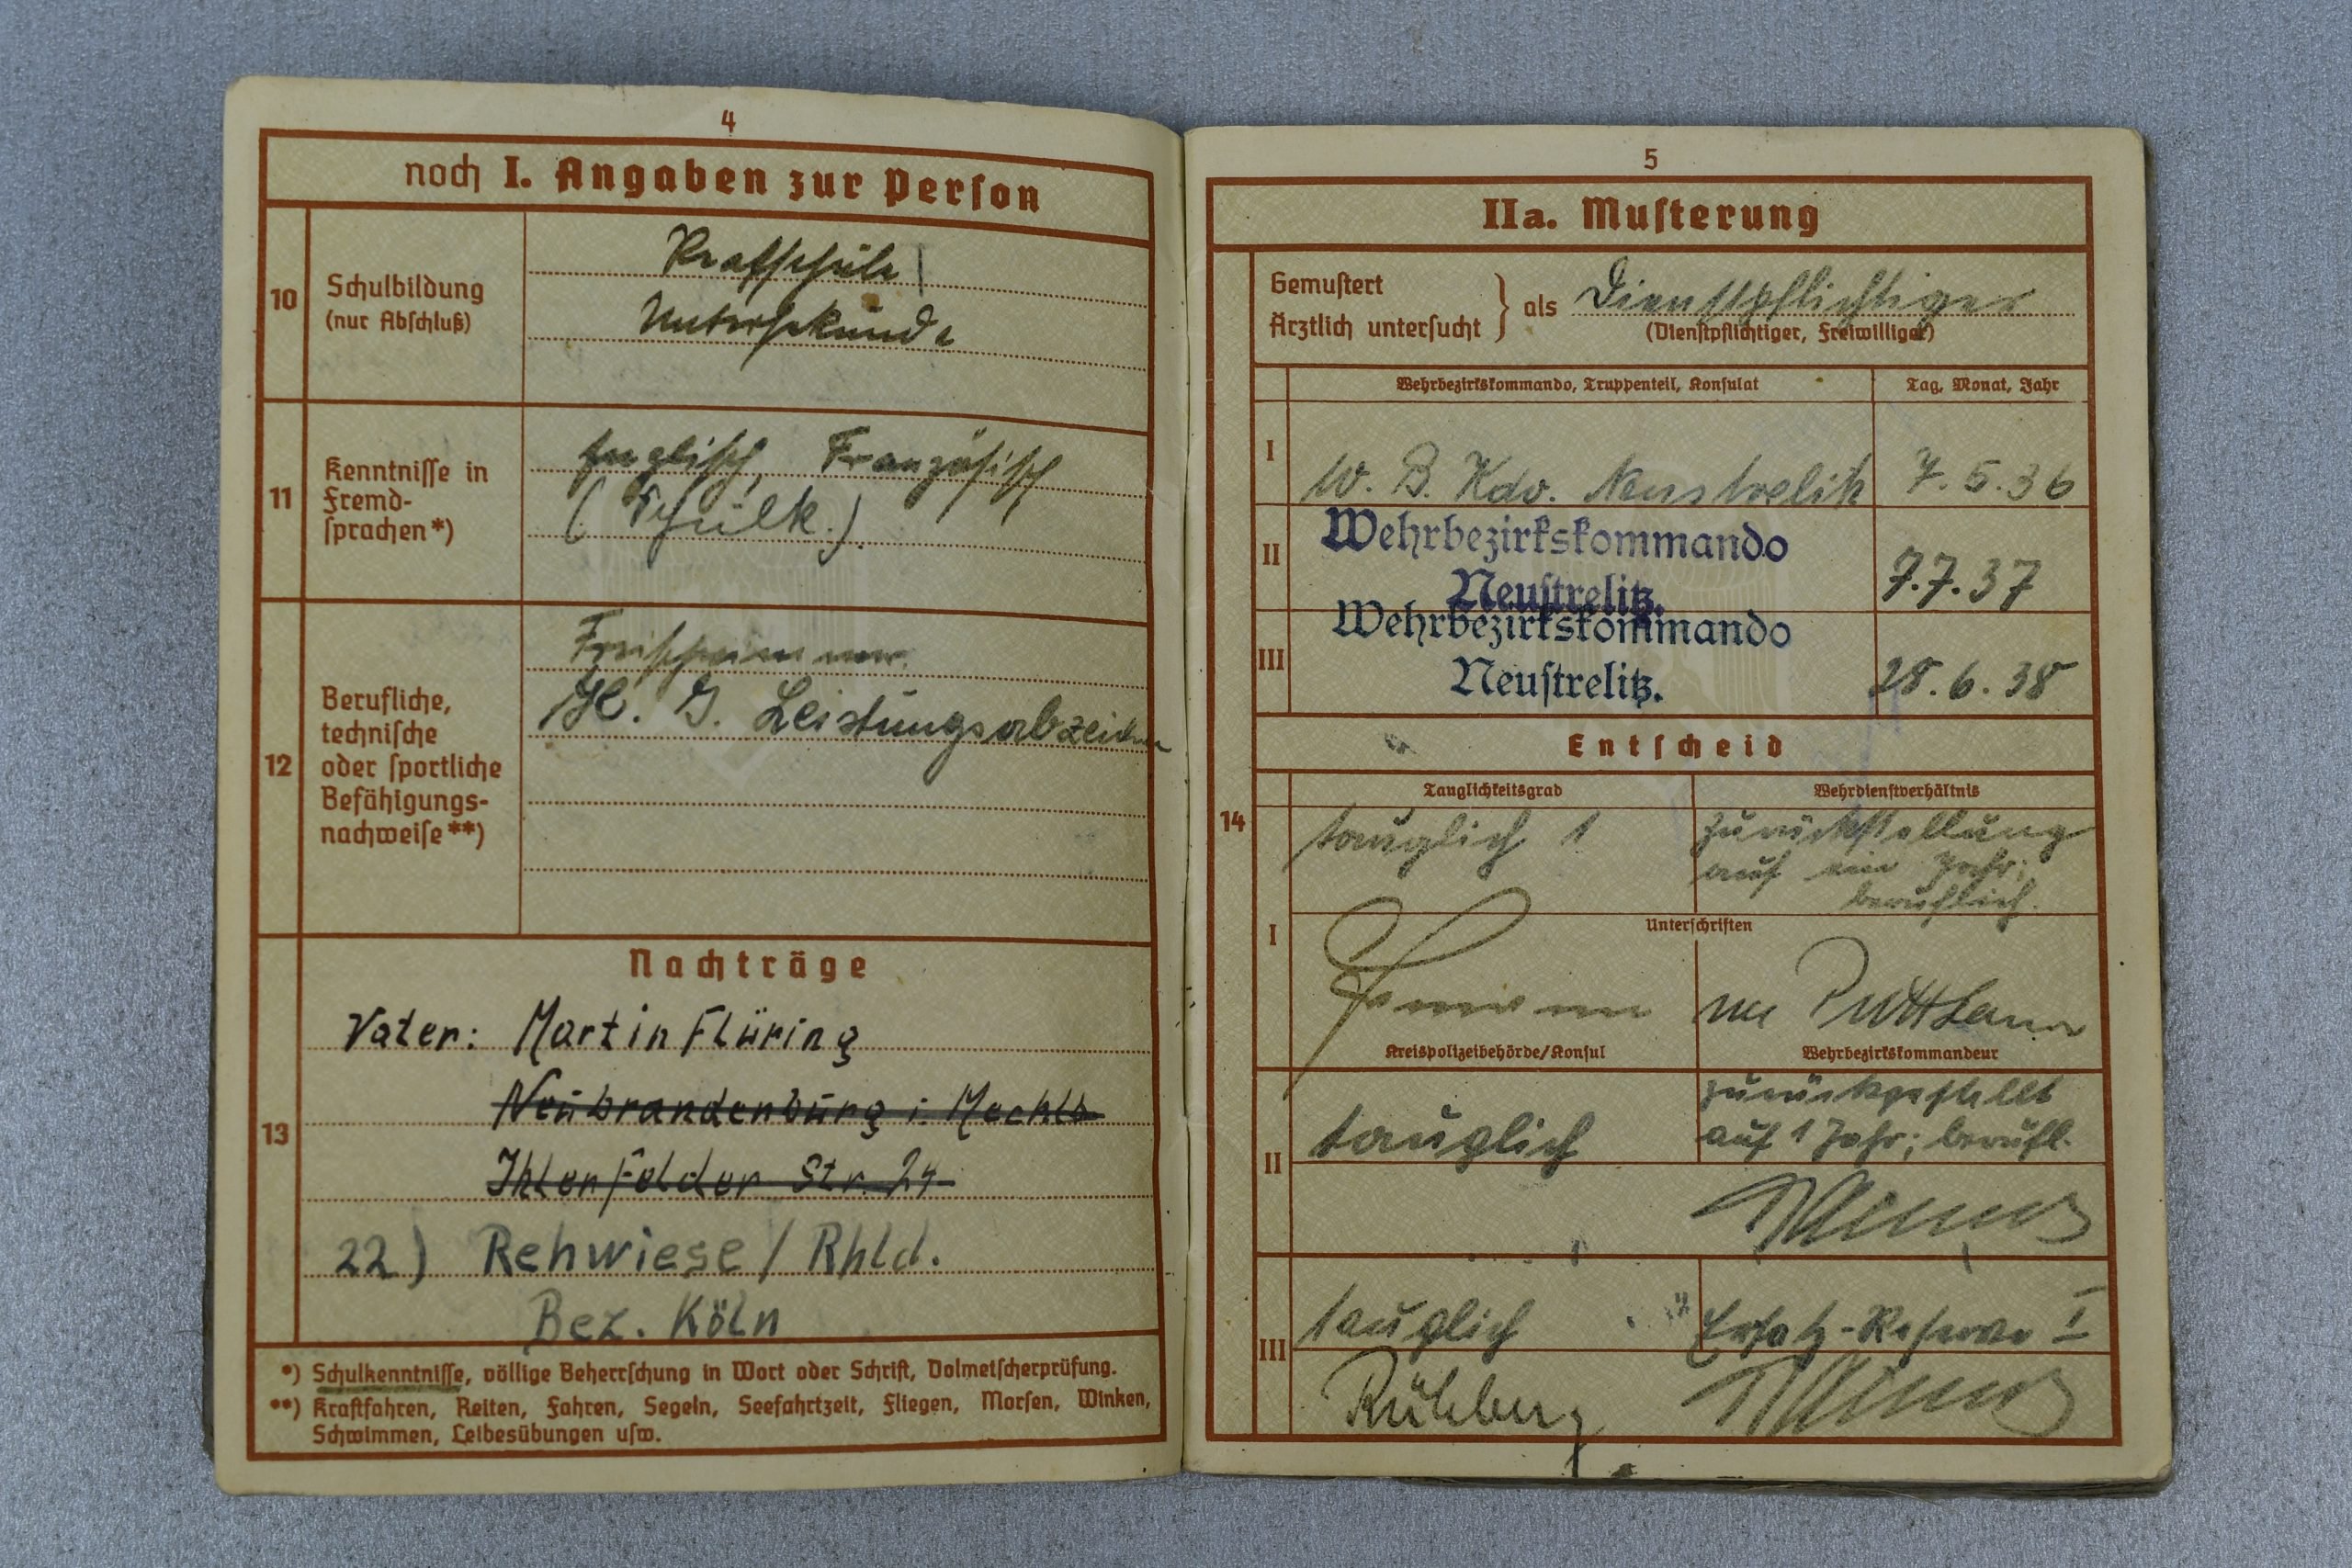 4
noch I. Angaben zur Person
10
Schulbildung
(nur Abschluß)
Untersekunda
11
Kenntnisse in
Fremd-
sprachen*)
Englisch, Französisch
(Schulk.)
12
Berufliche,
technische
oder sportliche
Befähigungs-
nachweise**)
Freischwimmer.
H. J. Leistungsabzeichen
Nachträge
13
Vater: Martin Flüring
Neubrandenburg i. Mecklb
Ihlenfelder Str. 24
22) Rehwiese / Rhld.
Bez. Köln
*) Schulkenntnisse, völlige Beherrschung in Wort oder Schrift, Dolmetscherprüfung.
**) Kraftfahren, Reiten, Fahren, Segeln, Seefahrtzeit, Fliegen, Morsen, Winken,
Schwimmen, Leibesübungen usw.
5
IIa. Musterung
Gemustert
Ärztlich untersucht } als Dienstpflichtiger
(Dienstpflichtiger, Freiwilliger)
Wehrbezirkskommando, Truppenteil, Konsulat
Tag, Monat, Jahr
I
W. B. Kdo. Neustrelitz 7.5.36
II
Wehrbezirkskommando
Neustrelitz. 7.7.37
III
Wehrbezirkskommando
Neustrelitz. 28.6.38
Entscheid
14
Tauglichkeitsgrad
Wehrdienstverhältnis
I
tauglich 1
Zurückstellung
auf ein Jahr;
beruflich.
Unterschriften
Kreispolizeibehörde/Konsul
Wehrbezirkskommandeur
II
tauglich
zurückgestellt
auf 1 Jahr; berufl.
III
tauglich
Ersatz-Reserve I